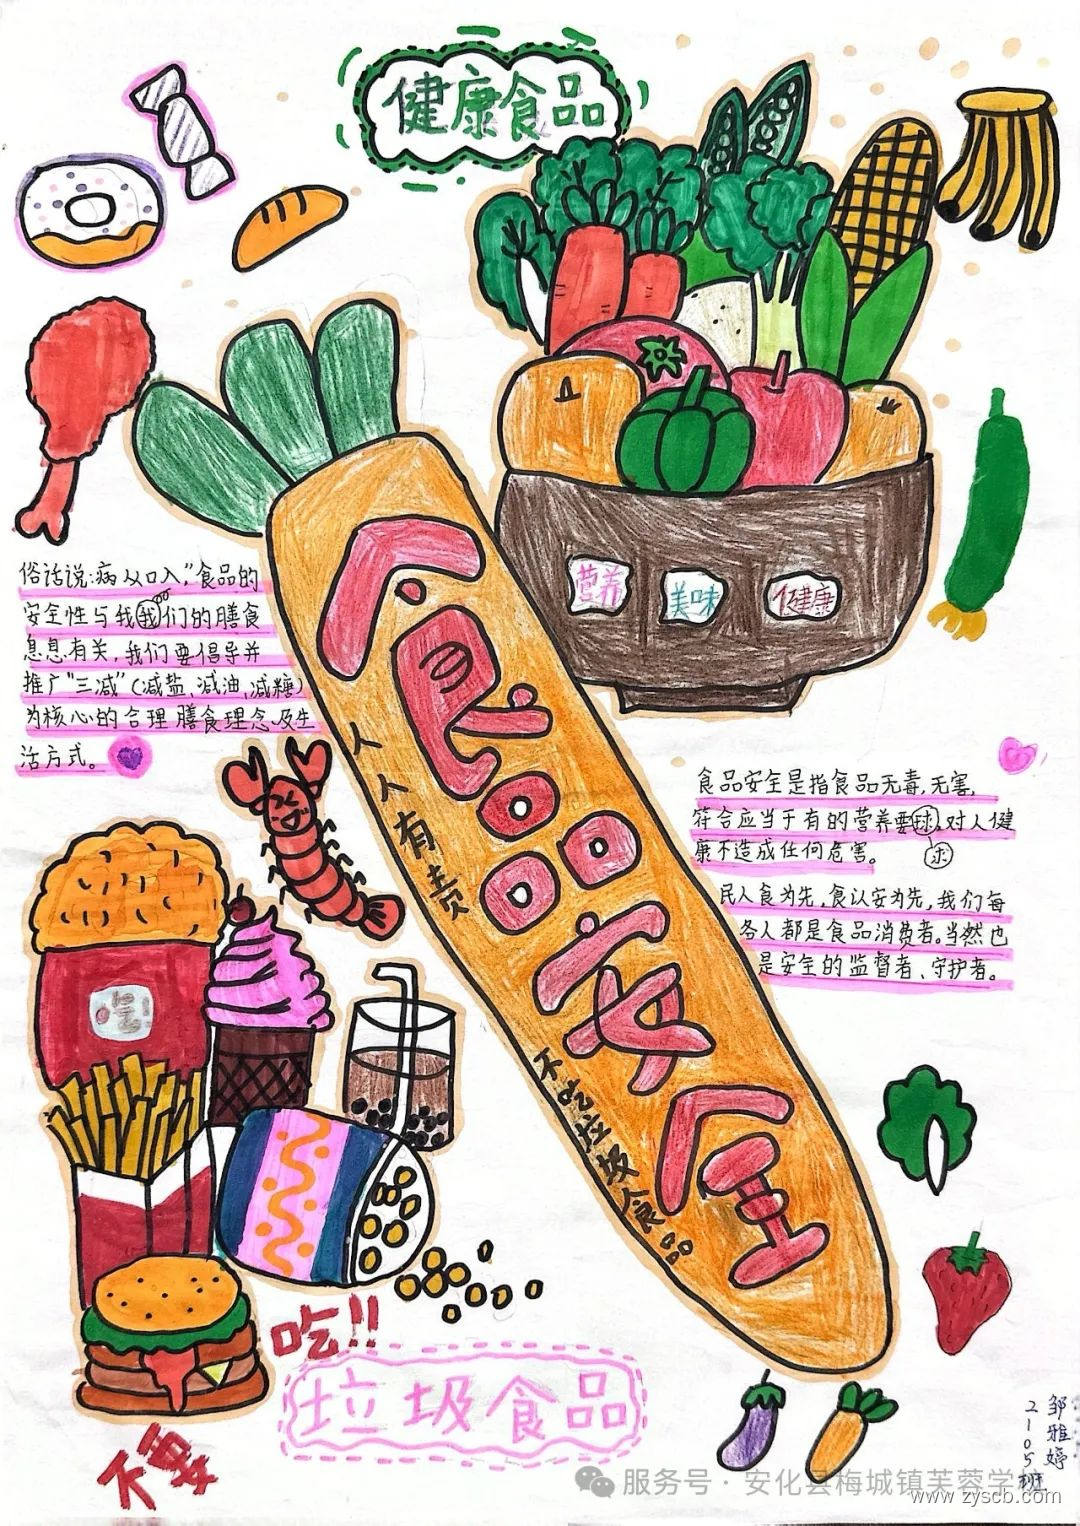 健康食品
营养
美味
健康
俗话说:病从口入,"食品的
安全性与我我们的膳食
息息有关,我们要倡导并
推广"三减"(减盐、减油、减糖)
为核心的合理膳食理念及生
活方式。
食品安全
人人有责
不吃垃圾食品
食品安全是指食品无毒,无害,
符合应当于有的营养要球,对人健
求
康不造成任何危害。
民人食为先,食认安为先,我们每
各人都是食品消费者。当然也
是安全的监督者、守护者。
吃!
吃!!
垃圾食品
不要
邹雅婷
2105班
服务号·安化县梅城镇芙蓉学校
www.zyscb.com